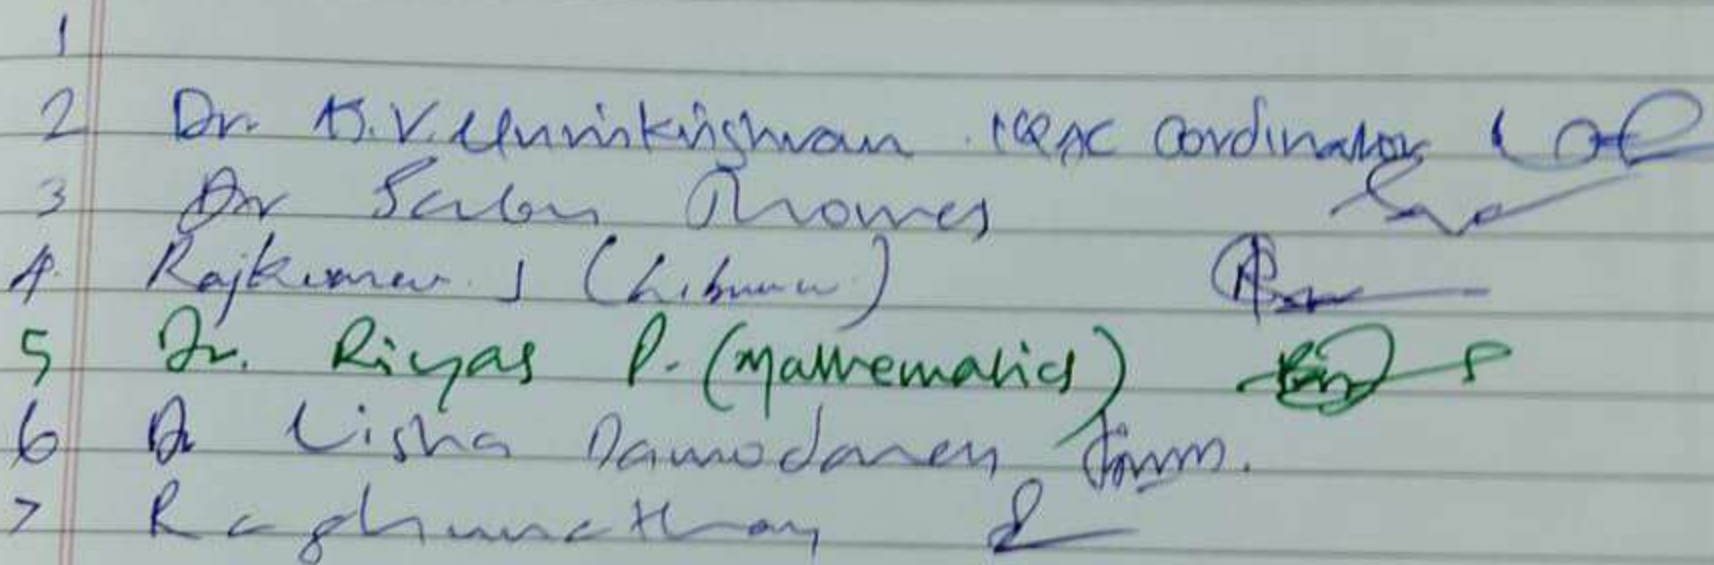 1
2 Dr. K.V. Unnikrishnan IQAC Cordinator
3 Dr Thomas
4. Rajkumar J
5 Dr. Riyas P. (Mathematics)
6 Dr Lisha Damodaran
7 Raghunathan